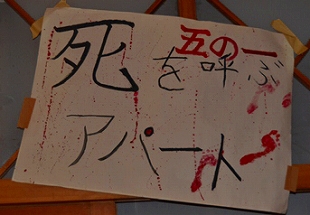 五の一
死を呼ぶ
アパート